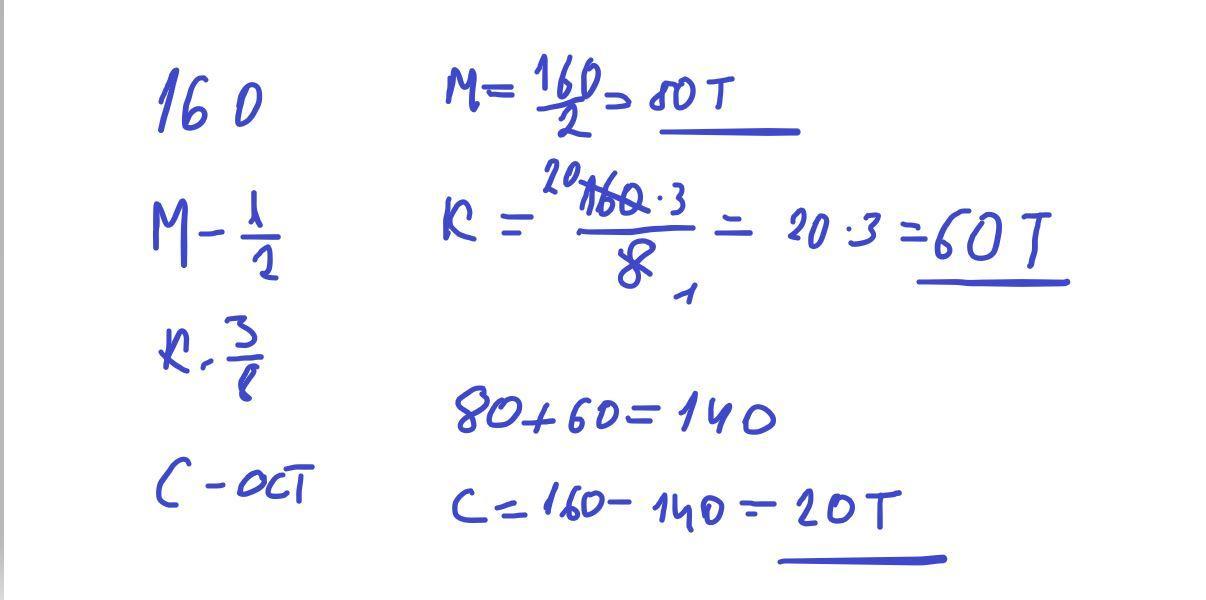 160
М - 1/2
К - 3/8
С - ост
М = 160/2 = 80 т
К = 20 160 · 3 / 8 1 = 20 · 3 = 60 т
80 + 60 = 140
С = 160 - 140 = 20 т